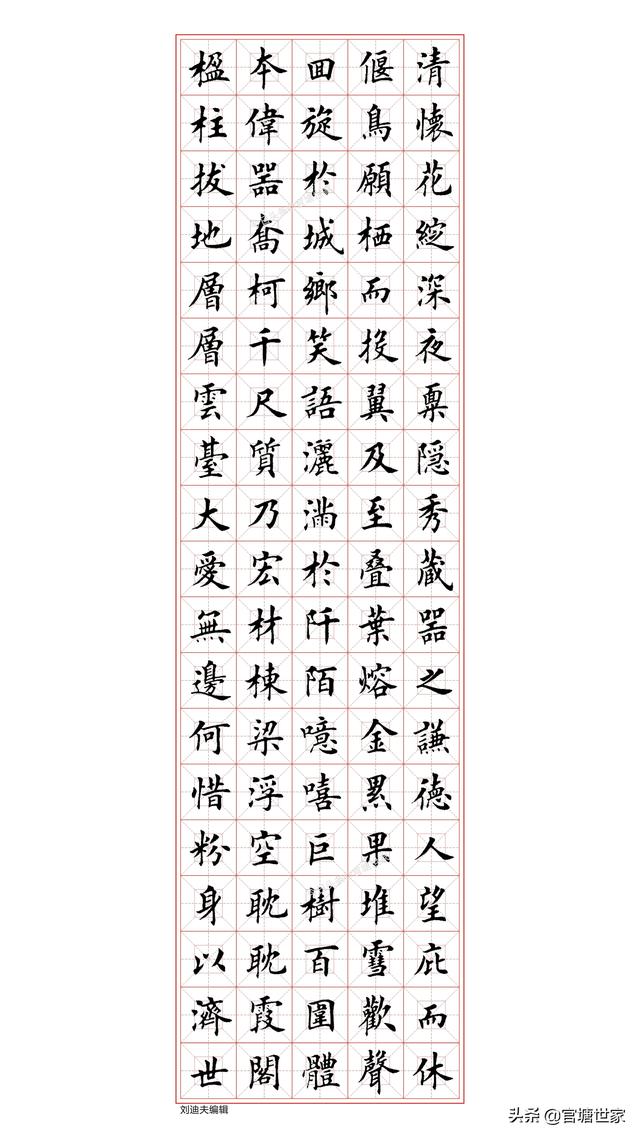 清懷花綻深夜稟隐秀蔵器之謙德人望庇而休
偃鳥願栖而投翼及至叠葉熔金累果堆雪歡聲
回旋於城鄉笑語灑滿於阡陌噫嘻巨樹百圍體
本偉器喬柯千尺質乃宏材棟梁浮空耽耽霞閣
楹柱拔地層層雲臺大愛無邊何惜粉身以濟世
刘迪夫编辑
头条 @官塘世家